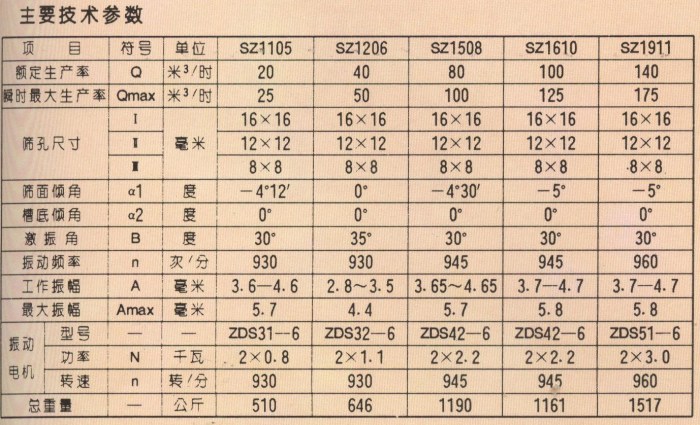 主要技术参数
项 目 符号 单位 SZ1105 SZ1206 SZ1508 SZ1610 SZ1911
额定生产率 Q 米³/时 20 40 80 100 140
瞬时最大生产率 Qmax 米³/时 25 50 100 125 175
Ⅰ 16×16 16×16 16×16 16×16 16×16
筛孔尺寸 Ⅱ 毫米 12×12 12×12 12×12 12×12 12×12
Ⅲ 8×8 8×8 8×8 8×8 8×8
筛面倾角 α1 度 －4°12′ 0° －4°30′ －5° －5°
槽底倾角 α2 度 0° 0° 0° 0° 0°
激振角 B 度 30° 35° 30° 30° 30°
振动频率 n 次/分 930 930 945 945 960
工作振幅 A 毫米 3.6—4.6 2.8～3.5 3.65～4.65 3.7—4.7 3.7—4.7
最大振幅 Amax 毫米 5.7 4.4 5.7 5.8 5.8
振动电机 型号 — — ZDS31—6 ZDS32—6 ZDS42—6 ZDS42—6 ZDS51—6
功率 N 千瓦 2×0.8 2×1.1 2×2.2 2×2.2 2×3.0
转速 n 转/分 930 930 945 945 960
总重量 — 公斤 510 646 1190 1161 1517